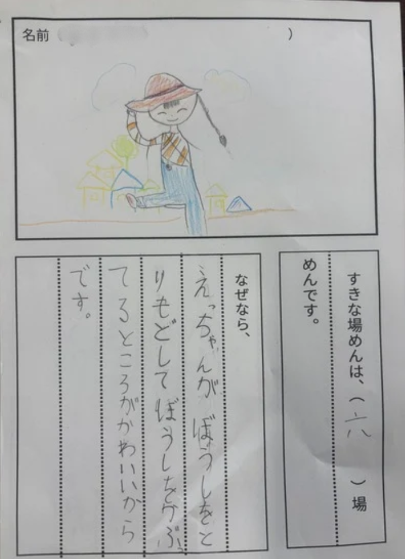 名前（　　　）
すきな場めんは、（六）場
めんです。
なぜなら、
えっちゃんが ぼうしをと
りもどして ぼうしをかぶっ
てるところががわいいから
です。